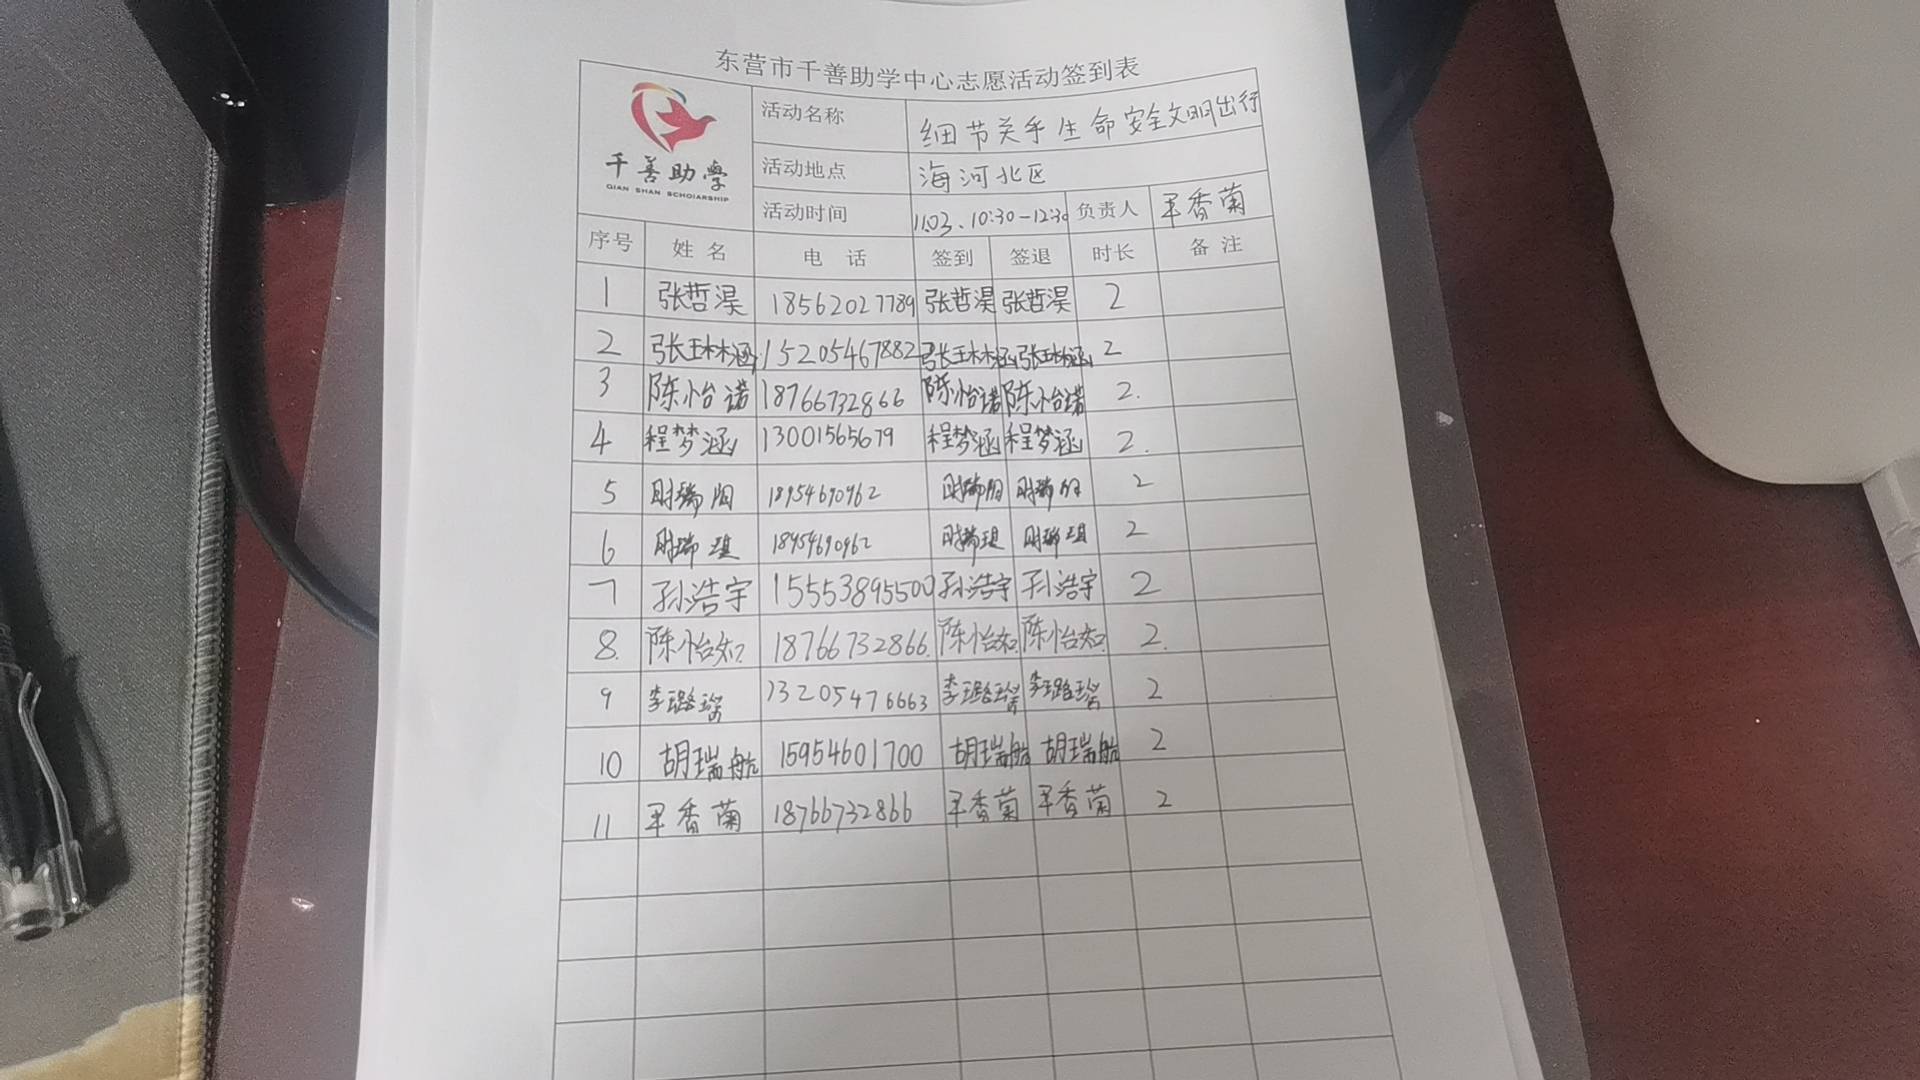 东营市千善助学中心志愿活动签到表
千善助学
QIAN SHAN SCHOIARSHIP
活动名称 细节关乎生命安全文明出行
活动地点 海河北区
活动时间 11.03. 10:30-12:30 负责人 平香菊
序号 姓名 电话 签到 签退 时长 备注
1 张哲淏 18562027789 张哲淏 张哲淏 2
2 张琳涵 15205467882 张琳涵 张琳涵 2
3 陈怡诺 18766732866 陈怡诺 陈怡诺 2.
4 程梦涵 13001565679 程梦涵 程梦涵 2.
5 时瑞阳 18954690962 时瑞阳 时瑞阳 2
6 时瑞琪 18954690962 时瑞琪 时瑞琪 2
7 孙浩宇 15553895500 孙浩宇 孙浩宇 2
8. 陈怡如 18766732866. 陈怡如 陈怡如 2.
9 李璐瑶 13205476663 李璐瑶 李璐瑶 2
10 胡瑞航 15954601700 胡瑞航 胡瑞航 2
11 平香菊 18766732866 平香菊 平香菊 2